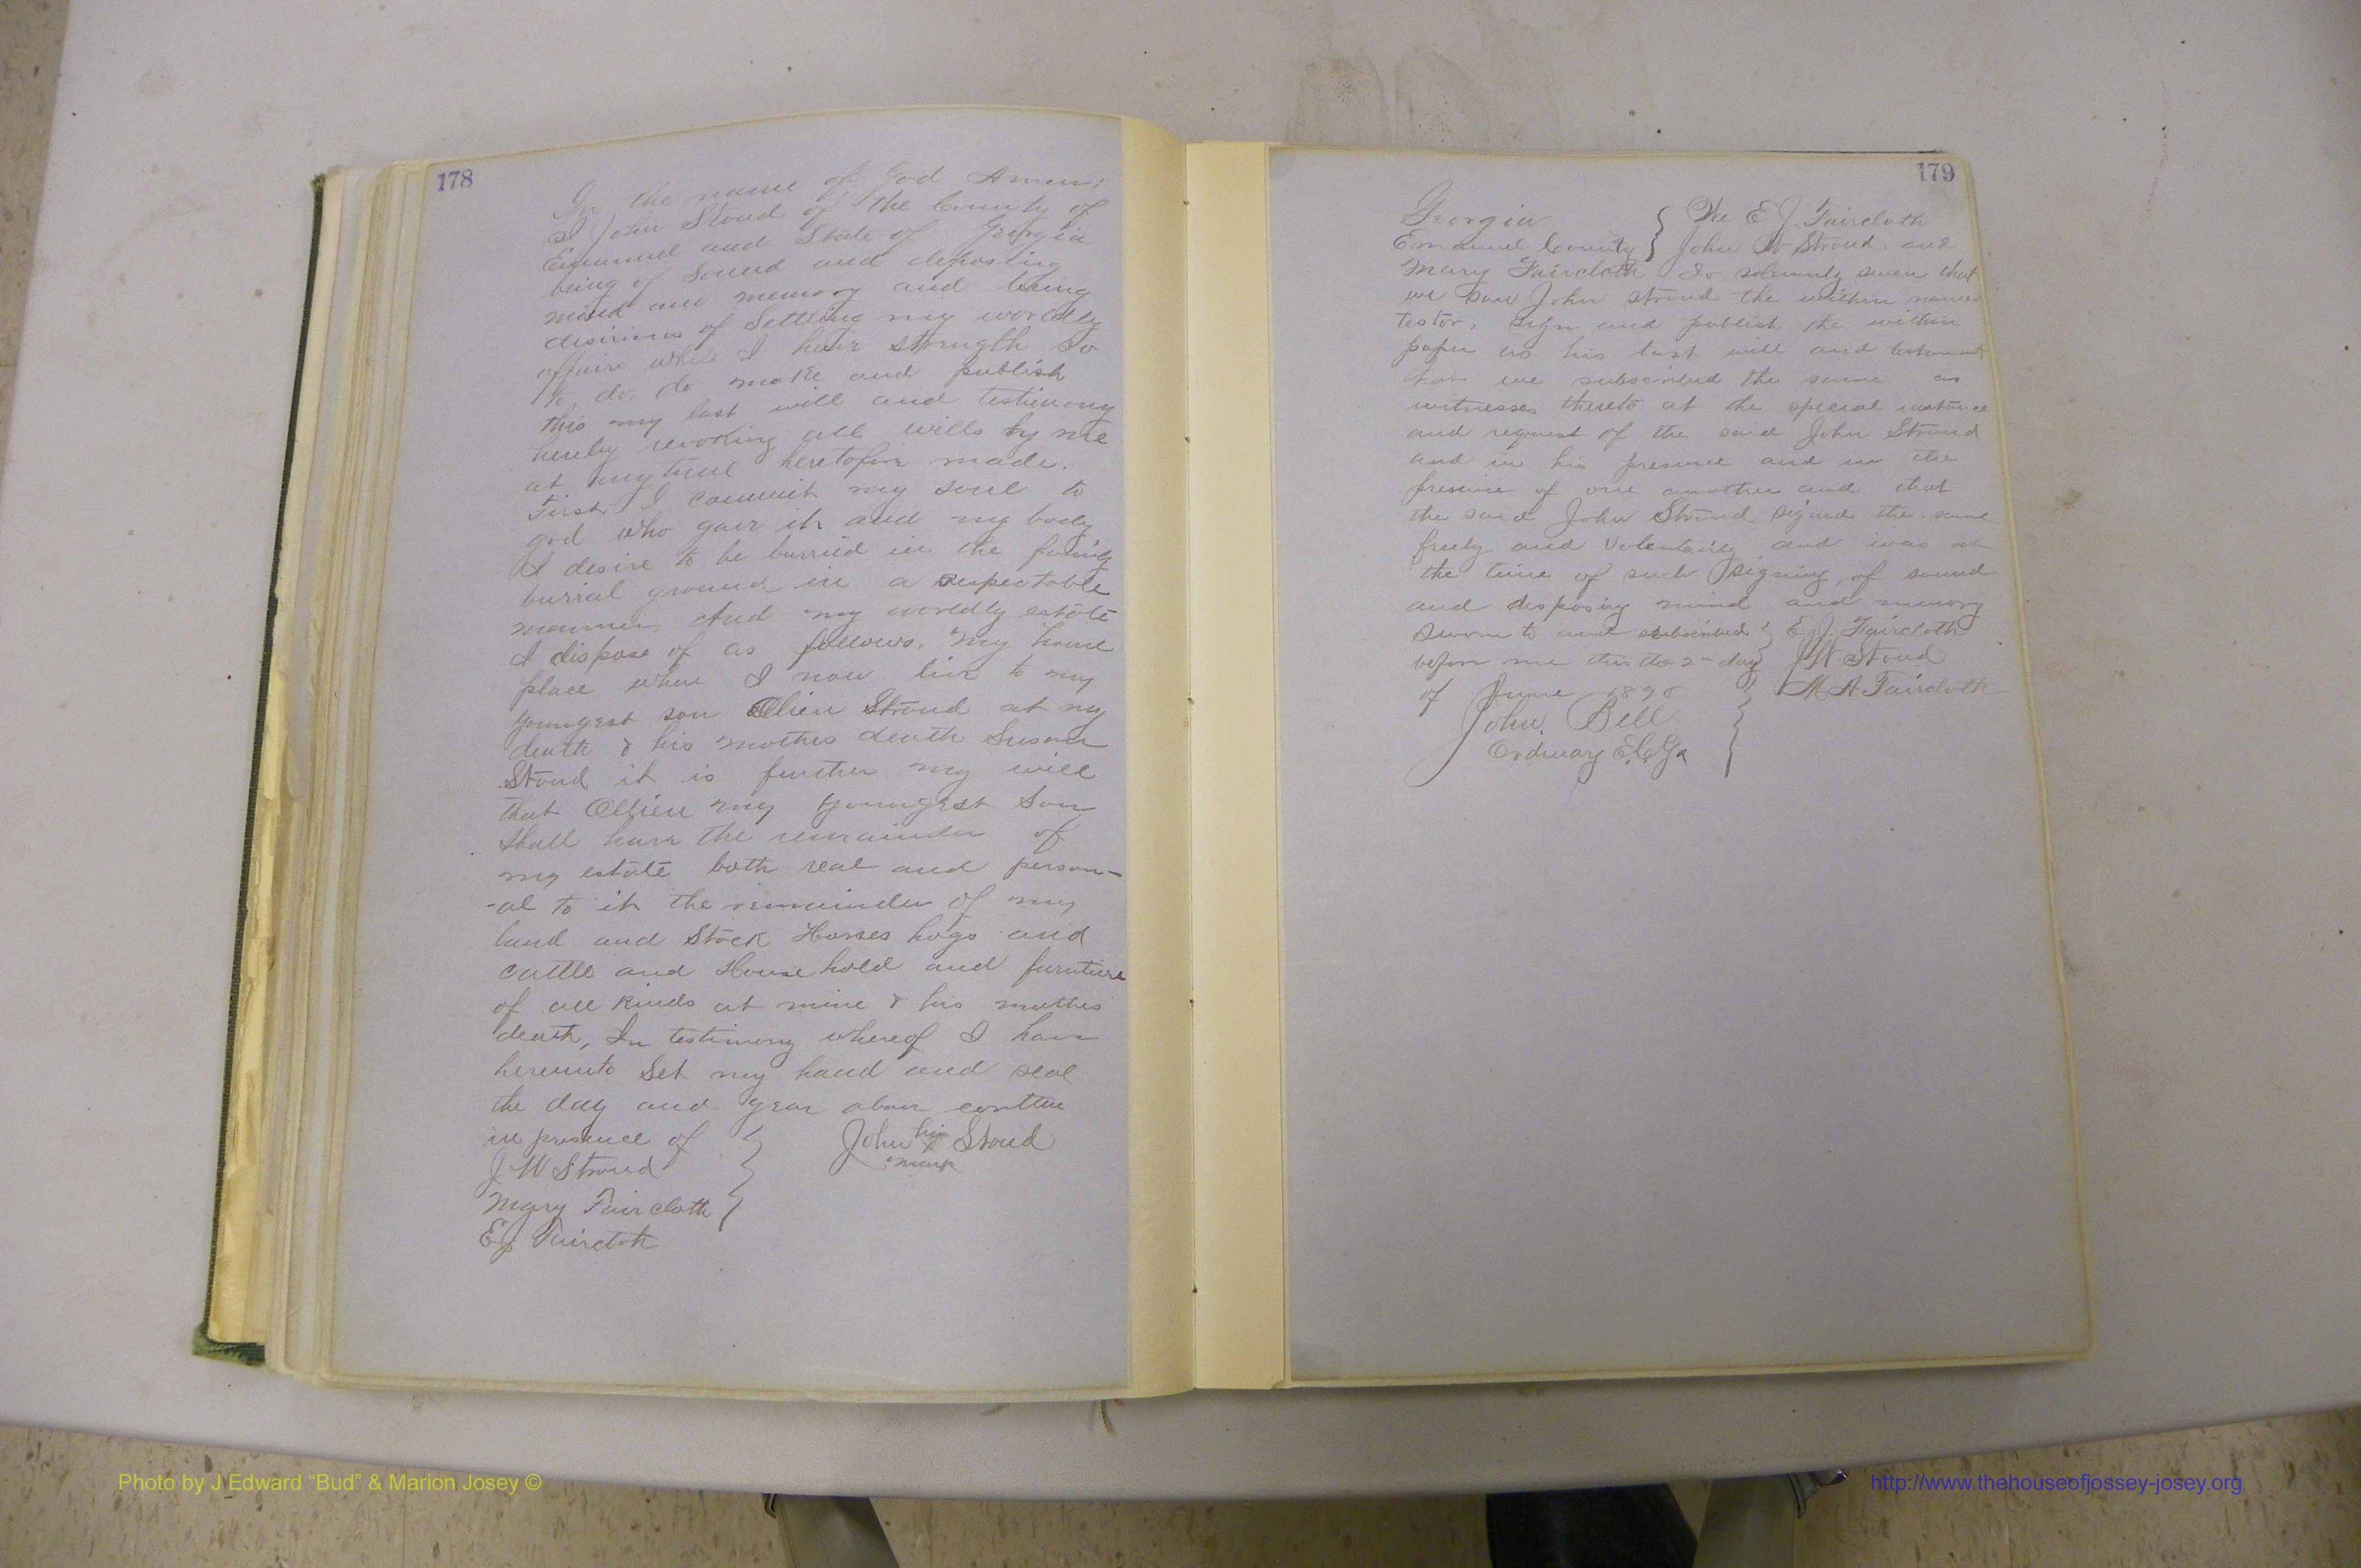 178
In the name of God Amen:
I John Stoud of the County of
Emanuel and State of Georgia
being of sound and deposing
mind and memory and being
desirious of settling my worldly
affairs while I have strength so
to do, do make and publish
this my last will and testimony
hereby revoking all wills by me
at anytime heretofore made.
First I commit my soul to
god who gave it and my body
I desire to be burried in the family
burrial ground in a respectable
manner And my worldly estate
I dispose of as follows. My home
place where I now live to my
youngest son Ollien Stroud at my
death & his mothers death Susan
Stoud it is further my will
that Ollien my youngest Son
shall have the remainder of
my estate both real and person-
-al to it the remainder of my
land and Stock Horses hogs and
cattle and House hold and furniture
of all kinds at mine & his mothers
death, In testimony whereof I have
hereunto Set my hand and seal
the day and year above
in presence of
John his x mark Stoud
J W Stroud
Mary Faircloth
E J Faircloth
179
Georgia
Emanuel County
We E J. Faircloth
John W Stroud and
Mary Faircloth do solemnly swear that
we saw John Stroud the within named
testor, sign and publish the within
paper as his last will and testament
that we subscribed the same as
witnesses thereto at the special instance
and request of the said John Stroud
and in his presence and in the
presence of one another and that
the said John Stroud signed the same
freely and Volentarily and was at
the time of such signing, of sound
and disposing mind and memory
Sworn to and subscribed
before me this the 2nd day
of June
E J. Faircloth
J W Stoud
M A Faircloth
John Bell
Ordinary E.C Ga
Photo by J Edward “Bud” & Marion Josey ©
http://www.thehouseofjossey-josey.org